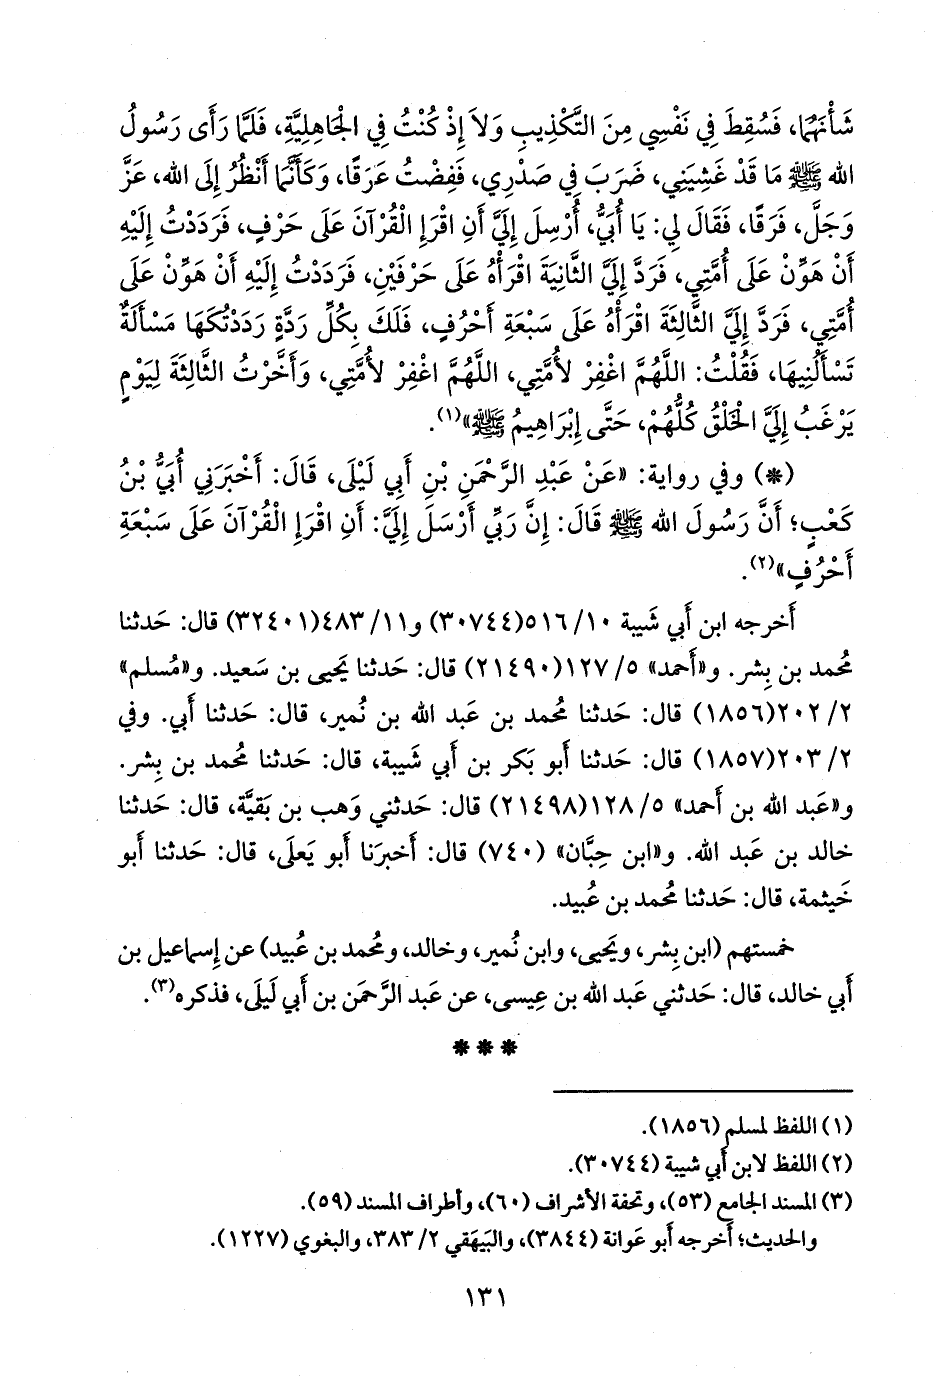 شَأْنَهُمَا، فَسُقِطَ فِي نَفْسِي مِنَ التَّكْذِيبِ وَلاَ إِذْ كُنْتُ فِي الْجَاهِلِيَّةِ، فَلَمَّا رَأَى رَسُولُ
الله ﷺ مَا قَدْ غَشِيَنِي، ضَرَبَ فِي صَدْرِي، فَفِضْتُ عَرَقًا، وَكَأَنَّمَا أَنْظُرُ إِلَى الله، عَزَّ
وَجَلَّ، فَرَقًا، فَقَالَ لِي: يَا أُبَيُّ، أُرْسِلَ إِلَيَّ أَنِ اقْرَإِ الْقُرْآنَ عَلَى حَرْفٍ، فَرَدَدْتُ إِلَيْهِ
أَنْ هَوِّنْ عَلَى أُمَّتِي، فَرَدَّ إِلَيَّ الثَّانِيَةَ اقْرَأْهُ عَلَى حَرْفَيْنِ، فَرَدَدْتُ إِلَيْهِ أَنْ هَوِّنْ عَلَى
أُمَّتِي، فَرَدَّ إِلَيَّ الثَّالِثَةَ اقْرَأْهُ عَلَى سَبْعَةِ أَحْرُفٍ، فَلَكَ بِكُلِّ رَدَّةٍ رَدَدْتُكَهَا مَسْأَلَةٌ
تَسْأَلُنِيهَا، فَقُلْتُ: اللَّهُمَّ اغْفِرْ لأُمَّتِي، اللَّهُمَّ اغْفِرْ لأُمَّتِي، وَأَخَّرْتُ الثَّالِثَةَ لِيَوْمٍ
يَرْغَبُ إِلَيَّ الْخَلْقُ كُلُّهُمْ، حَتَّى إِبْرَاهِيمُ ﷺ»(١).
(*) وفي رواية: «عَنْ عَبْدِ الرَّحْمَنِ بْنِ أَبِي لَيْلَى، قَالَ: أَخْبَرَنِي أُبَيُّ بْنُ
كَعْبٍ؛ أَنَّ رَسُولَ الله ﷺ قَالَ: إِنَّ رَبِّي أَرْسَلَ إِلَيَّ: أَنِ اقْرَإِ الْقُرْآنَ عَلَى سَبْعَةِ
أَحْرُفٍ»(٢).
أَخرجه ابن أَبي شَيبة ١٠/ ٥١٦(٣٠٧٤٤) و١١/ ٤٨٣(٣٢٤٠١) قال: حَدثنا
مُحمد بن بِشر. و«أَحمد» ٥/ ١٢٧(٢١٤٩٠) قال: حَدثنا يَحيى بن سَعيد. و«مُسلم»
٢/ ٢٠٢(١٨٥٦) قال: حَدثنا مُحمد بن عَبد الله بن نُمير، قال: حَدثنا أَبي. وفي
٢/ ٢٠٣(١٨٥٧) قال: حَدثنا أَبو بَكر بن أَبي شَيبة، قال: حَدثنا مُحمد بن بِشر.
و«عَبد الله بن أَحمد» ٥/ ١٢٨(٢١٤٩٨) قال: حَدثني وَهب بن بَقيَّة، قال: حَدثنا
خالد بن عَبد الله. و«ابن حِبَّان» (٧٤٠) قال: أَخبرَنا أَبو يَعلَى، قال: حَدثنا أَبو
خَيثمة، قال: حَدثنا مُحمد بن عُبيد.
خمستهم (ابن بِشر، ويَحيى، وابن نُمير، وخالد، ومُحمد بن عُبيد) عن إِسماعيل بن
أَبي خالد، قال: حَدثني عَبد الله بن عِيسى، عن عَبد الرَّحمَن بن أَبي لَيلَى، فذكره(٣).
* * *
(١) اللفظ لمسلم (١٨٥٦).
(٢) اللفظ لابن أَبي شيبة (٣٠٧٤٤).
(٣) المسند الجامع (٥٣)، وتحفة الأشراف (٦٠)، وأطراف المسند (٥٩).
والحديث؛ أَخرجه أَبو عَوانة (٣٨٤٤)، والبَيهَقي ٢/ ٣٨٣، والبغوي (١٢٢٧).
١٣١